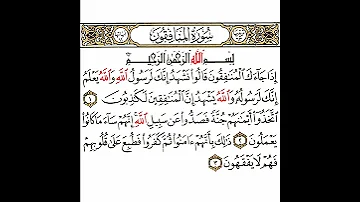 سُورَةُ الْمُنَافِقُونَ
بِسْمِ اللَّهِ الرَّحْمَٰنِ الرَّحِيمِ
إِذَا جَاءَكَ الْمُنَافِقُونَ قَالُوا نَشْهَدُ إِنَّكَ لَرَسُولُ اللَّهِ وَاللَّهُ يَعْلَمُ
إِنَّكَ لَرَسُولُهُ وَاللَّهُ يَشْهَدُ إِنَّ الْمُنَافِقِينَ لَكَاذِبُونَ ١
اتَّخَذُوا أَيْمَانَهُمْ جُنَّةً فَصَدُّوا عَن سَبِيلِ اللَّهِ إِنَّهُمْ سَاءَ مَا كَانُوا
يَعْمَلُونَ ٢ ذَٰلِكَ بِأَنَّهُمْ آمَنُوا ثُمَّ كَفَرُوا فَطُبِعَ عَلَىٰ قُلُوبِهِمْ
فَهُمْ لَا يَفْقَهُونَ ٣